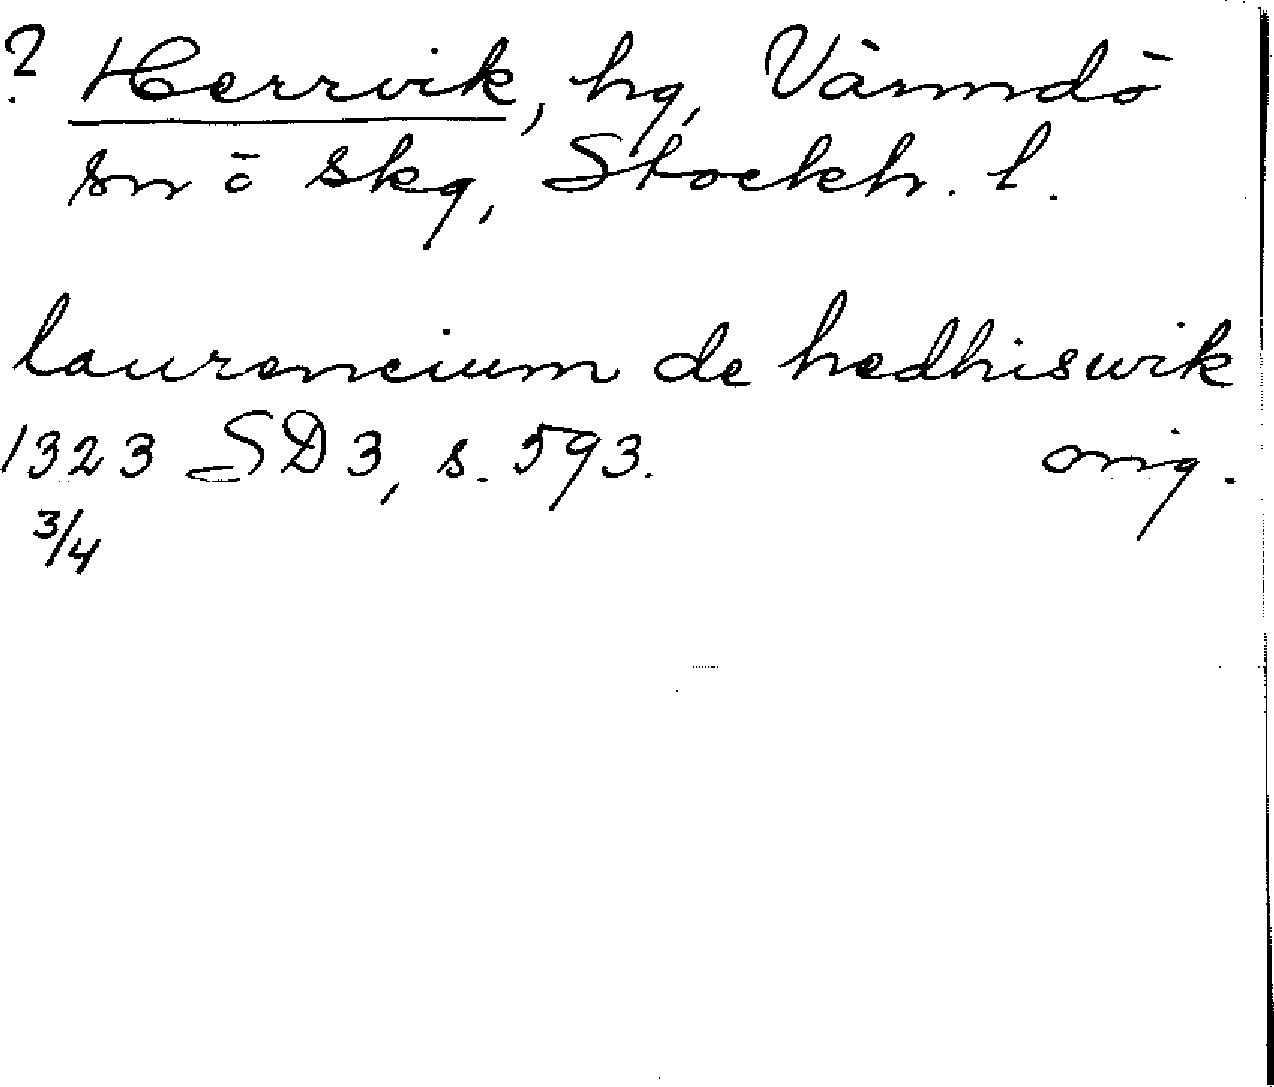 ? Herrvik, hg, Värmdö
sn o skg, Stockh. l.
laurencium de hedhiswik
1323 SD 3, s. 593. orig.
3/4